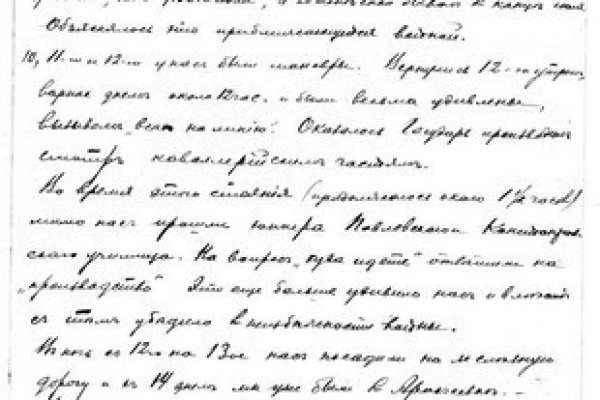 Объяснялось это приближающейся войной.
10, 11-го и 12-го у нас были маневры. Вернулись 12-го утром,
вернее днем около 12 час. и были весьма удивлены,
вызовом „всех на линию". Оказалось Государь производит
смотр кавалерийским частям.
Во время этого стояния (продолжалось около 1½ часов)
мимо нас прошли юнкера Павловского
училища. На вопрос „куда идете" ответили на
„производство" Это еще больше удивило нас и
с тем убедило в неизбежности войны.
В ночь с 12го на 13ое нас посадили на железную
дорогу и 14 днем мы уже были в